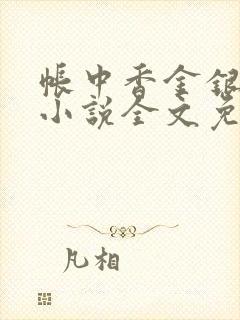 帐中香金银
小説全文免
凡相